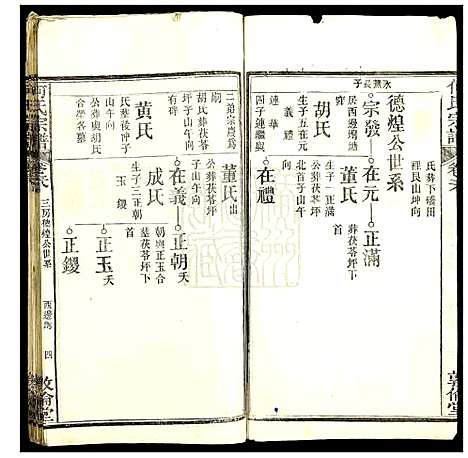 何氏宗譜
敦倫堂
氏葬下橋田
裡艮山坤向
德煌公世系
永熹長子
宗發
在元
正滿
居西邊塆塘
胡氏
生子五
義
禮
連
華
四子連繼與
董氏
生子一正滿
葬茯苓坪下
首
北首子山午
向
在禮
二弟宗慶爲
嗣
胡氏葬茯苓
坪子山午向
有碑
董氏
出
公葬茯苓坪
子山午向
在義
正朝
夭
黄氏
氏葬後坪子
山午向
公葬與胡氏
合塋各墓
成氏
生子三正朝
玉
鑁
朝與正玉合
墓茯苓坪下
首
正玉
夭
正鑁
何氏宗譜
三房德煌公世系
西邊塆
四
敦倫堂